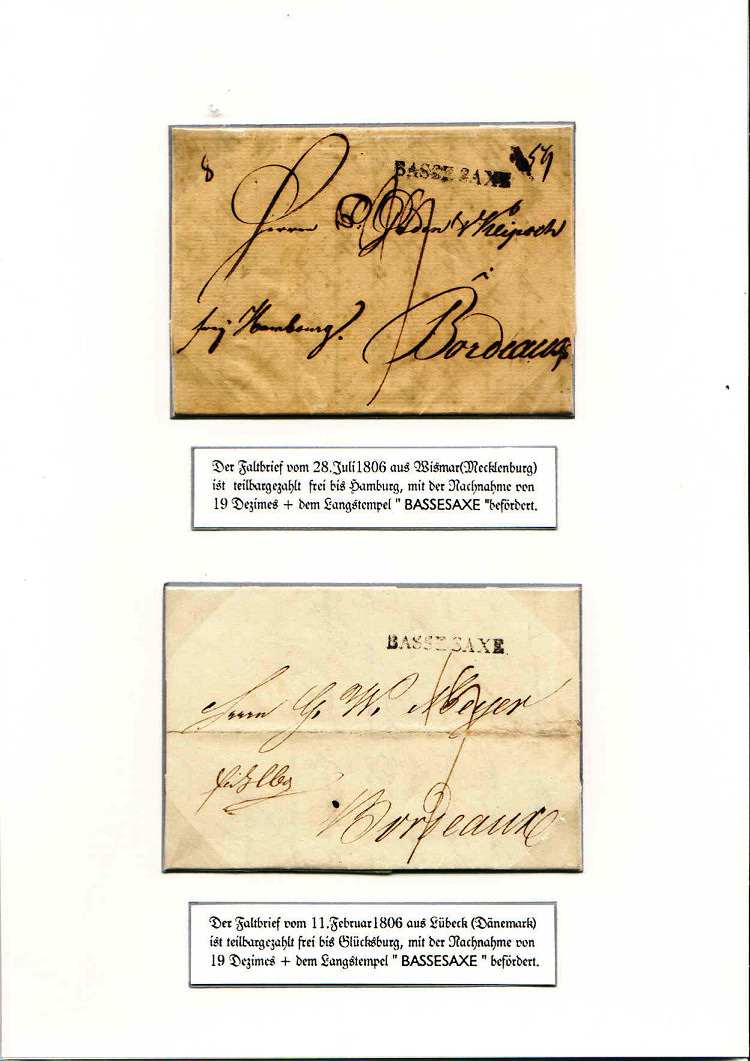 8
BASSE SAXE
Herrn
frey Hambourg.
à
Bordeaux
Der Faltbrief vom 28.Juli1806 aus Wismar(Mecklenburg)
ist teilbargezahlt frei bis Hamburg, mit der Nachnahme von
19 Dezimes + dem Langstempel " BASSESAXE "befördert.
BASSE SAXE
Herrn G. W. Meyer
Bordeaux
Der Faltbrief vom 11.Februar1806 aus Lübeck (Dänemark)
ist teilbargezahlt frei bis Glücksburg, mit der Nachnahme von
19 Dezimes + dem Langstempel " BASSESAXE " befördert.